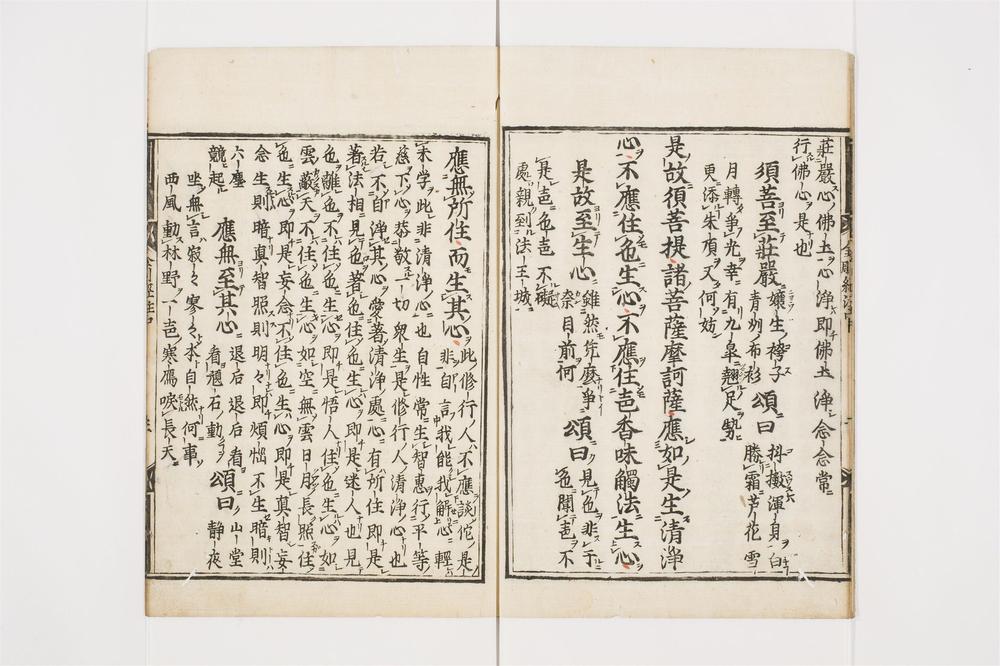 莊嚴心佛土心淨即佛土淨念念常
行佛心是也
須菩至莊嚴 孃生袴子
青州布衫 頌曰 抖擻渾身白
勝霜芦花雪
月轉爭光幸有九皐翹足勢
更添朱頂又何妨
是故須菩提諸菩薩摩訶薩應如是生清淨
心不應住色生心不應住声香味觸法生心
是故至生心 雖然恁麼爭
奈目前何 頌曰 見色非于
色聞声不
是声色声不礙
處親到法王城
應無所住而生其心 此修行人不應談佗是
非自言我能我解心輕
末学此非清淨心也自性常生智惠行平等
慈下心恭敬一切衆生是修行人清淨心也
若不自淨其心愛著清淨處心有所住即是
著法相見色著色住色生心即是迷人也見
色離色不住色生心即是悟人住色生心如
雲蔽天不住色生心如空無雲日月長照住
色生心即是妄念不住色生心即是真智妄
念生則暗真智照則明々即煩惱不生暗則
六塵
競起 應無至其心 退后退后看
看頑石動 頌曰 山堂
静夜
坐無言寂々寥々本自然何事
西風動林野一声寒鴈唳長天